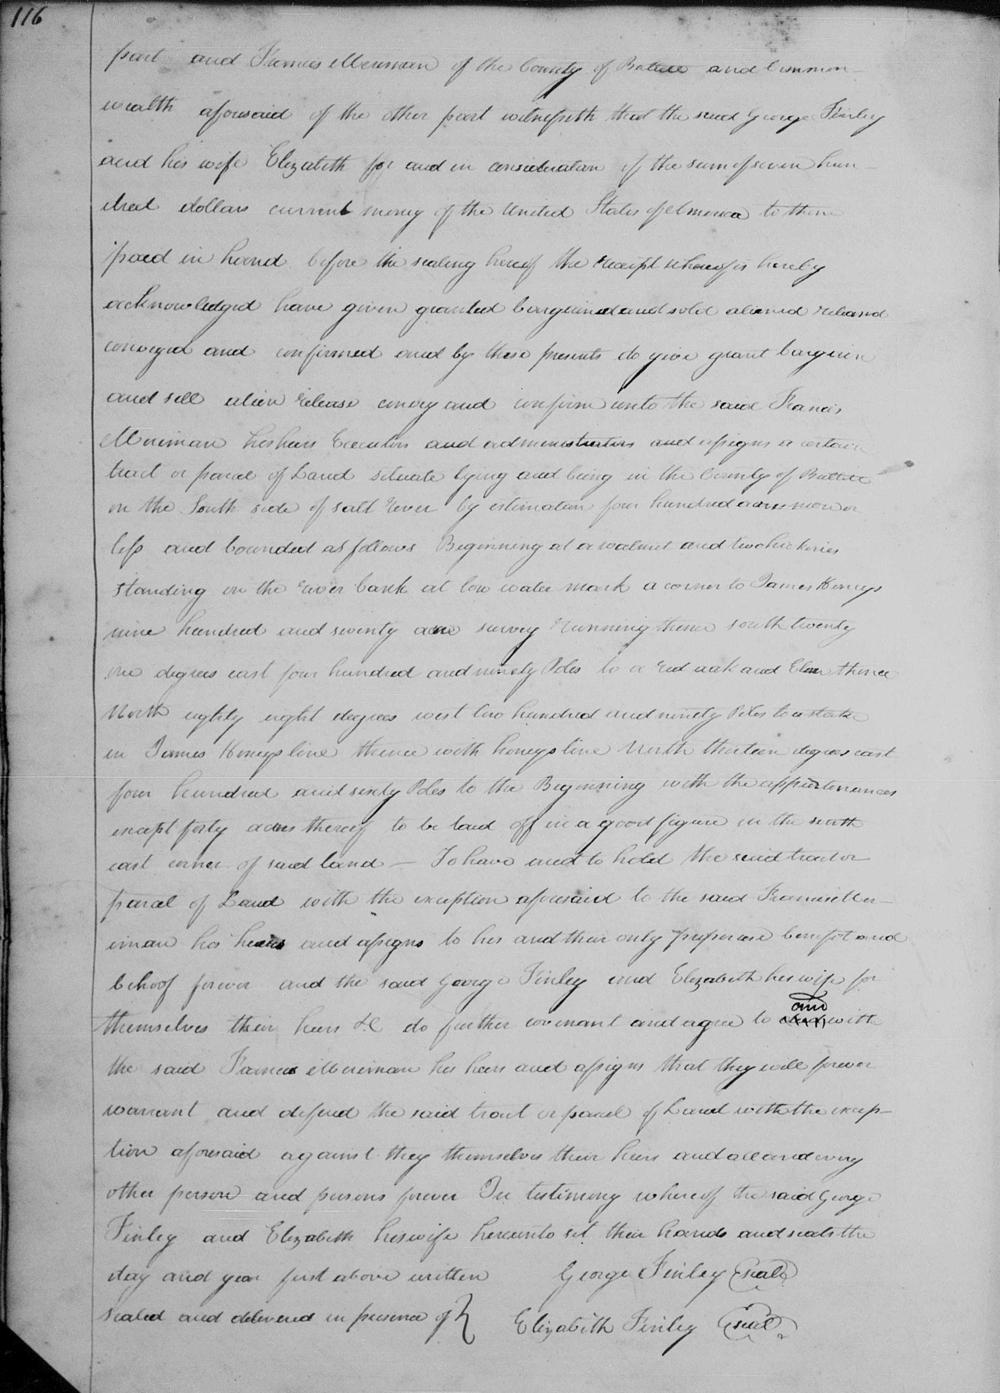 116
part and Francis Meriman of the County of Butler and Common-
wealth aforesaid of the other part witnesseth that the said George Finley
and his wife Elizabeth for and in consideration of the sum of seven hun-
dred dollars current money of the United States of America to them
paid in hand before the sealing hereof the receipt whereof is hereby
acknowledged have given granted bargained and sold aliened released
conveyed and confirmed and by these presents do give grant bargain
and sell alien release convey and confirm unto the said Francis
Meriman his heirs Executors and administrators and assigns a certain
tract or parcel of Land situate lying and being in the County of Butler
on the South side of salt river by estimation four hundred acres more or
less and bounded as follows Beginning at a walnut and two hickories
standing on the river bank at low water mark a corner to James Honeys
nine hundred and seventy acre survey running thence south twenty
one degrees east four hundred and ninety Poles to a red oak and Elm thence
North eighty eight degrees west two hundred and ninety Poles to a stake
in James Honeys line thence with honeys line North thirteen degrees east
four hundred and sixty Poles to the Beginning with the appurtenances
except forty acres thereof to be laid off in a good figure in the south
east corner of said land — To have and to hold the said tract or
parcel of Land with the exception aforesaid to the said Francis Mer-
iman his heirs and assigns to his and their only proper use benefit and
behoof forever and the said George Finley and Elizabeth his wife for
themselves their heirs &c do further covenant and agree to and with
the said Francis Meriman his heirs and assigns that they will forever
warrant and defend the said tract or parcel of Land with the excep-
tion aforesaid against they themselves their heirs and all and every
other person and persons forever In testimony whereof the said George
Finley and Elizabeth his wife hereunto set their hands and seals the
day and year first above written George Finley (seal)
sealed and delivered in presence of } Elizabeth Finley (seal)